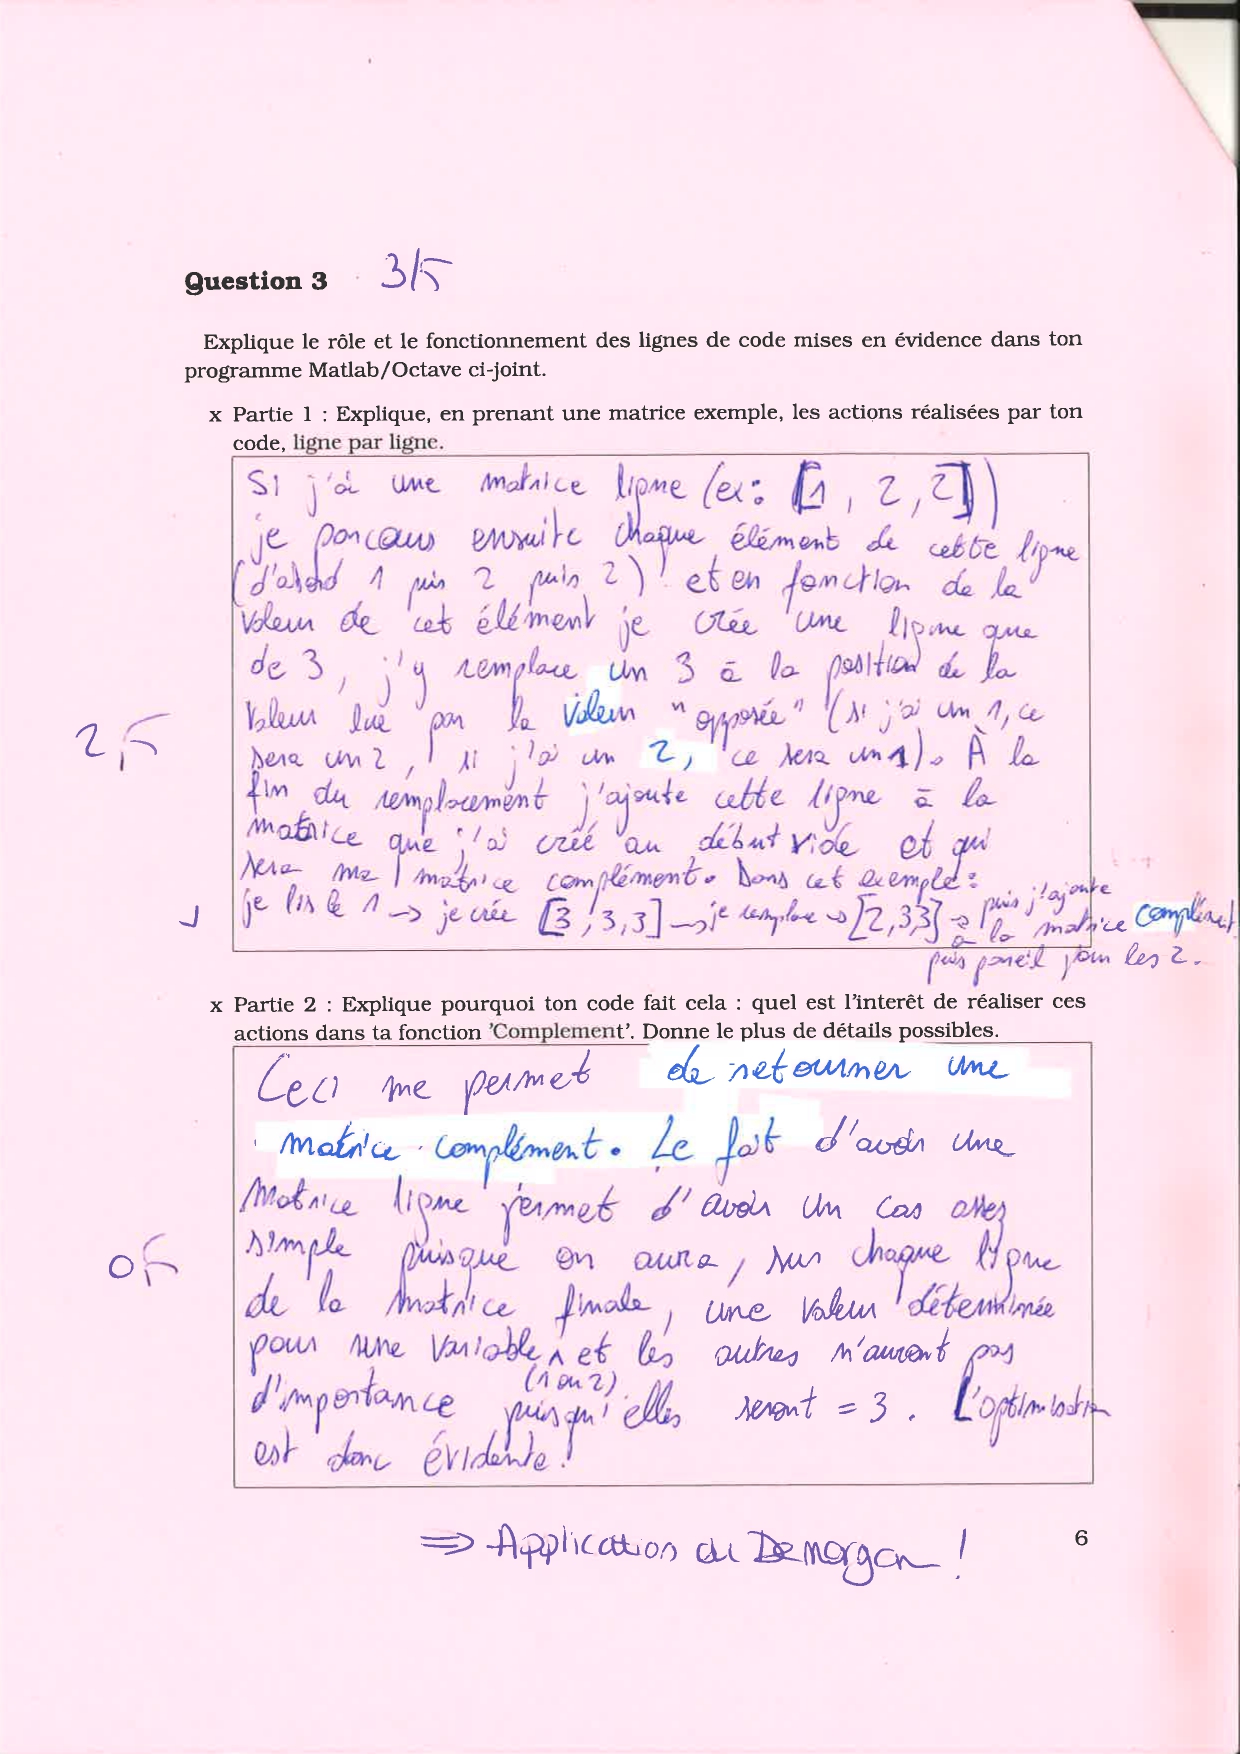 Question 3 3/5
Explique le rôle et le fonctionnement des lignes de code mises en évidence dans ton
programme Matlab/Octave ci-joint.
x Partie 1 : Explique, en prenant une matrice exemple, les actions réalisées par ton
code, ligne par ligne.
Si j'ai une matrice ligne (ex: [1, 2, 2])
je parcours ensuite chaque élément de cette ligne
(d'abord 1 puis 2 puis 2) et en fonction de la
valeur de cet élément je crée une ligne que
de 3, j'y remplace un 3 à la position de la
valeur lue par la valeur "opposée" (si j'ai un 1, ce
2,5
sera un 2, si j'ai un 2, ce sera un 1). À la
fin du remplacement j'ajoute cette ligne à la
matrice que j'ai créé au début vide et qui
sera ma matrice complément. Dans cet exemple :
je lis le 1 → je crée [3, 3, 3] → je remplace → [2,3,3] → puis j'ajoute
à la matrice complément
puis pareil pour les 2.
x Partie 2 : Explique pourquoi ton code fait cela : quel est l'interêt de réaliser ces
actions dans ta fonction 'Complement'. Donne le plus de détails possibles.
Ceci me permet de retourner une
matrice complément. Le fait d'avoir une
matrice ligne permet d'avoir un cas assez
simple puisque on aura, sur chaque ligne
0,5
de la matrice finale, une valeur déterminée
pour une variable ^ et les autres n'auront pas
(1 ou 2)
d'importance puisqu'elles seront = 3. L'optimisation
est donc évidente.
⇒ Application de Demorgan !
6